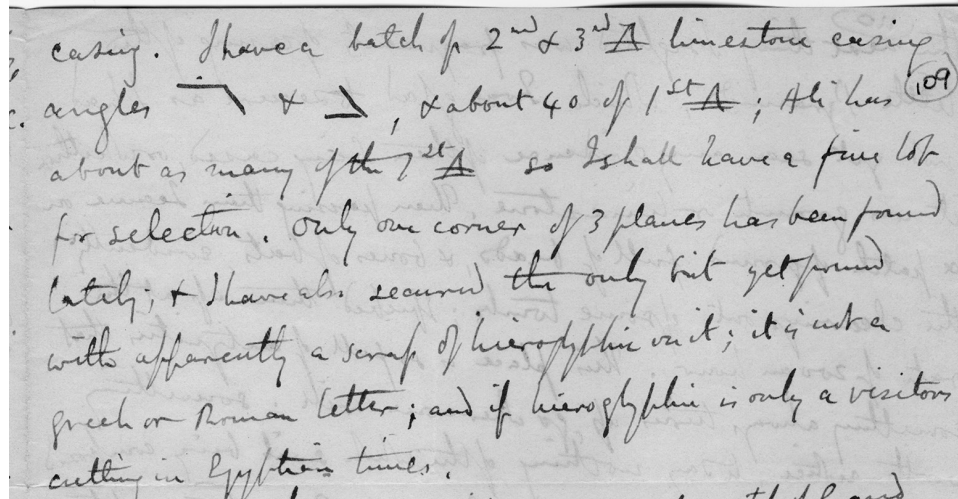 casing. I have a batch of 2nd & 3rd A limestone casing
angles & , & about 40 of 1st A ; Ali has
109
about as many of the 1st A so I shall have a fine lot
for selection. Only one corner of 3 planes has been found
lately, & I have also secured the only bit yet found
with apparently a scrap of hieroglyphic on it; it is not a
greek or Roman letter; and if hieroglyphic is only a visitors
cutting in Egyptian times.